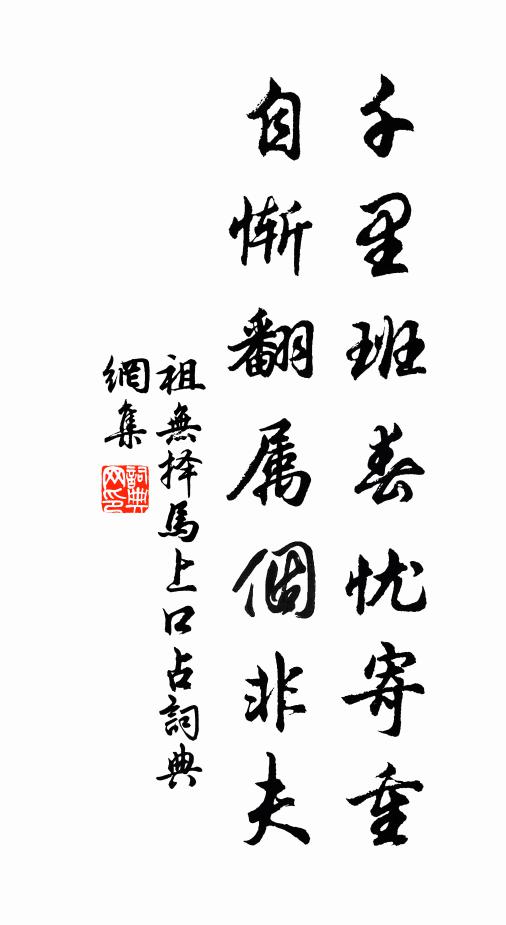 千里班春忧寄重
自惭翻属個非夫
祖無择馬上口占詞典
網集
詞典网印